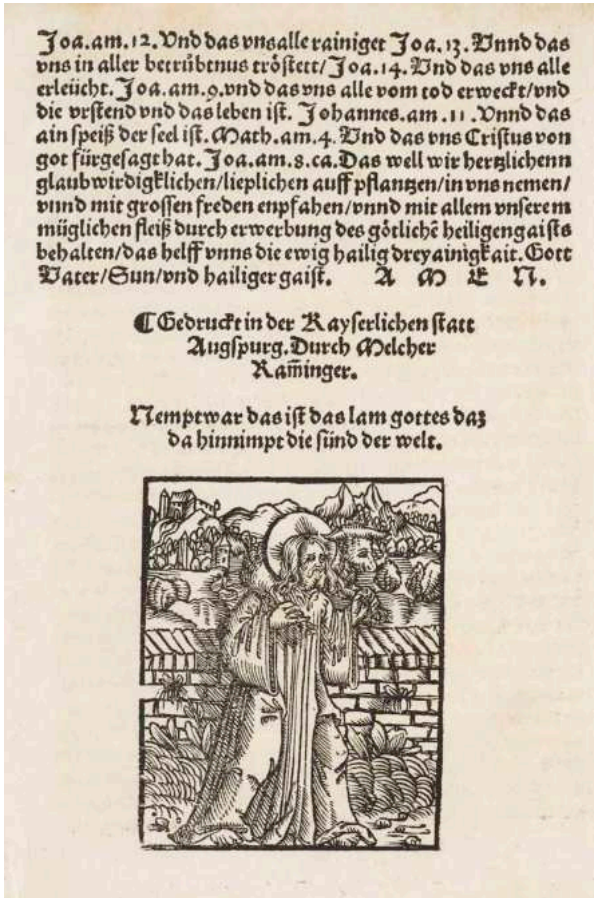 Joa.am.12.Vnd das vns alle rainiget Joa.13.Vnnd das
vns in aller betrübtnus tröstett/Joa.14.Vnd das vns alle
erleücht.Joa.am.9.vnd das vns alle vom tod erweckt/vnd
die vrstend vnd das leben ist. Johannes.am.11.Vnnd das
ain speiß der seel ist.Math.am.4.Vnd das vns Cristus von
got fürgesagt hat.Joa.am.8.ca.Das well wir hertzlichenn
glaubwirdigklichen/lieplichen auff pflantzen/in vns nemen/
vnnd mit grossen freden enpfahen/vnnd mit allem vnserem
müglichen fleiß durch erwerbung des götlichē heiligen gaists
behalten/das helff vnns die ewig hailig dreyainigkait.Gott
Vater/Sun/vnd hailiger gaist. A M E N.
¶Gedruckt in der Kayserlichen statt
Augspurg.Durch Melcher
Ram̄inger.
Nempt war das ist das lam gottes daz
da hinnimpt die sünd der welt.